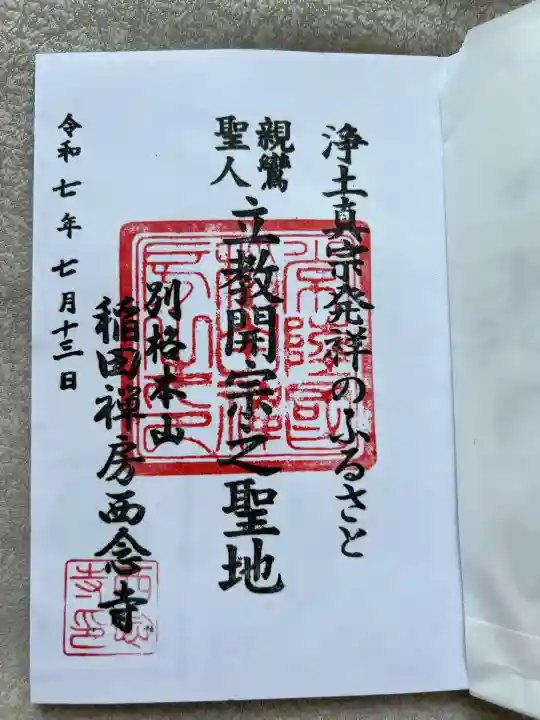 浄土真宗発祥のふるさと
親鸞
聖人
立教開宗之聖地
別格本山
稲田禅房西念寺
令和七年七月十三日